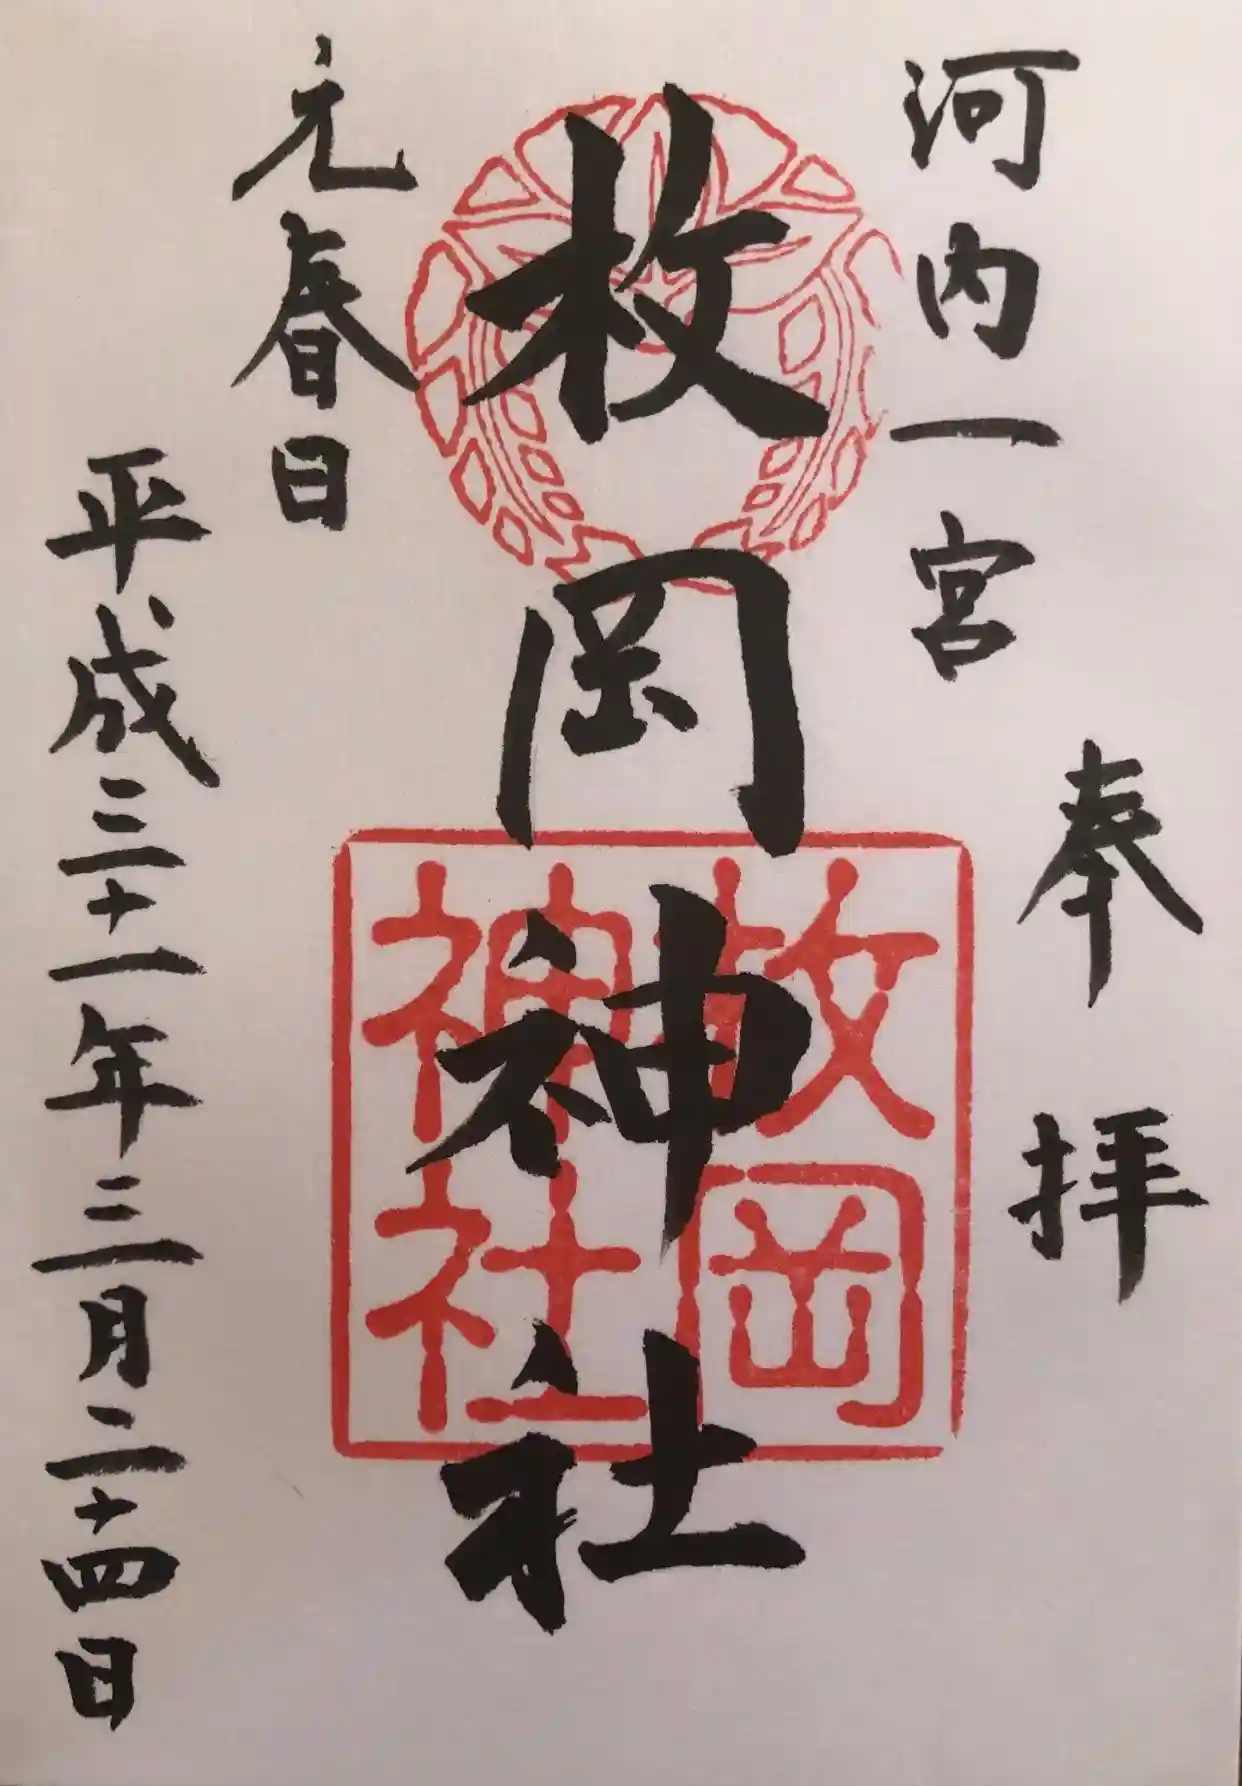 奉拝
河内一宮
枚岡神社
枚岡
神社
元春日
平成三十一年三月二十四日